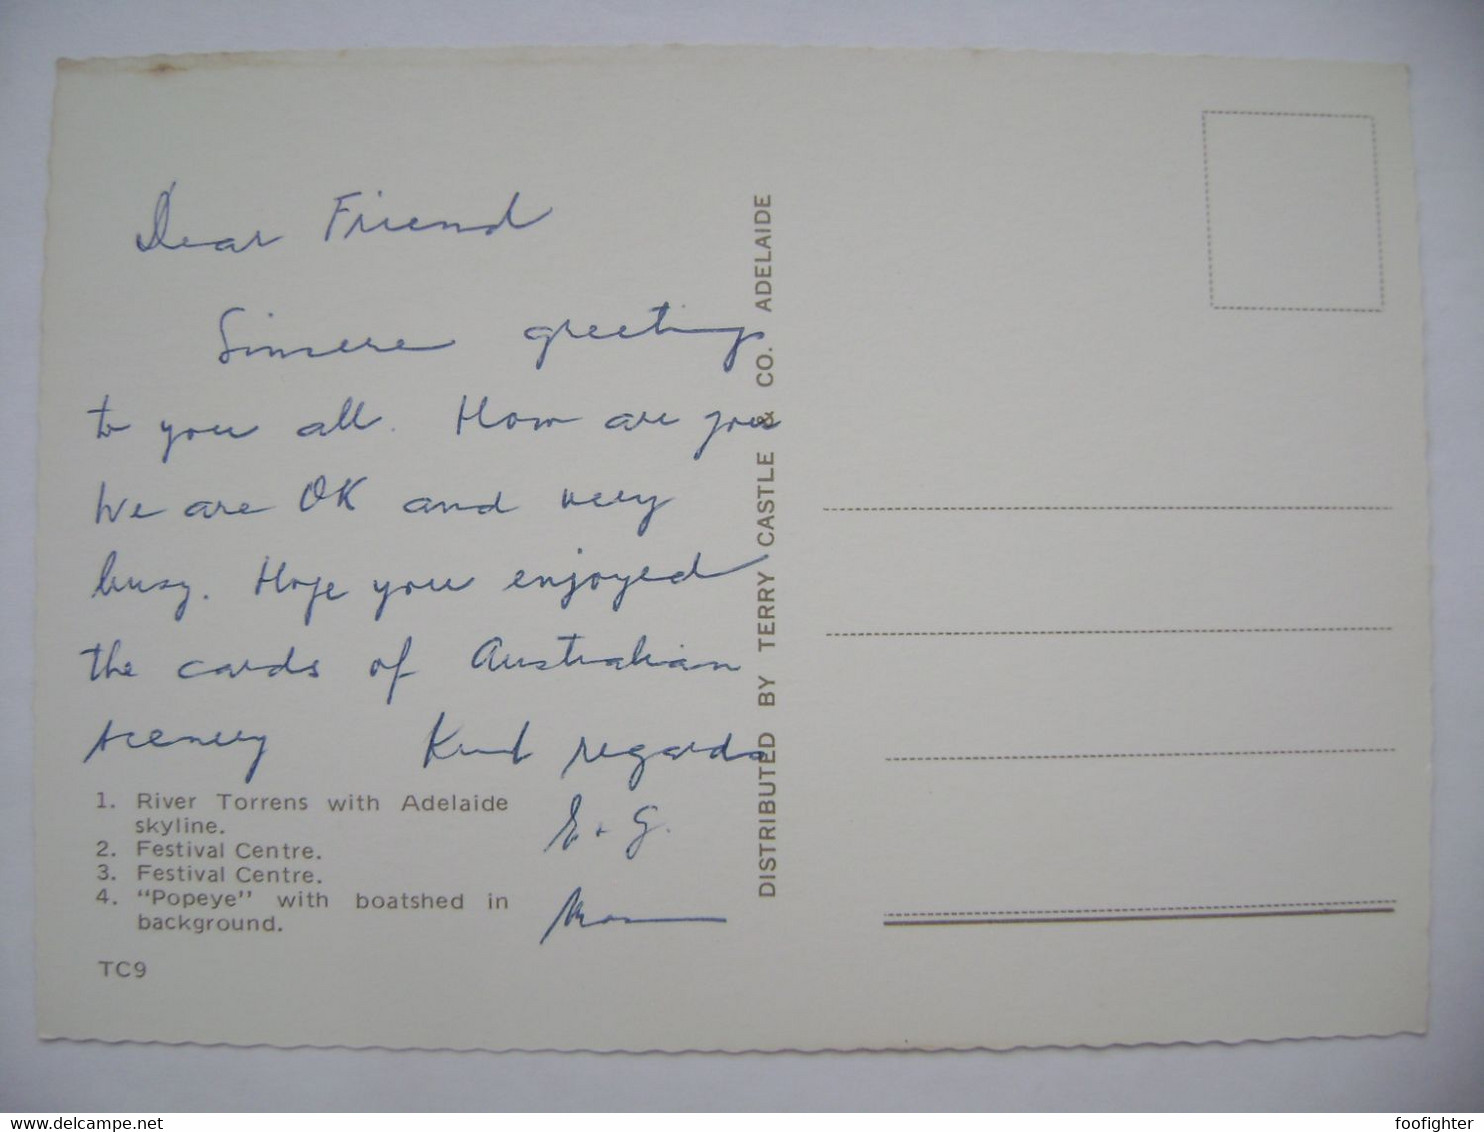 Dear Friend
Sincere greetings
to you all. How are you
We are OK and very
busy. Hope you enjoyed
the cards of Australian
scenery Kind regards
E + G.
1. River Torrens with Adelaide
skyline.
2. Festival Centre.
3. Festival Centre.
4. "Popeye" with boatshed in
background.
TC9
DISTRIBUTED BY TERRY CASTLE & CO. ADELAIDE
delcampe.net
foofighter